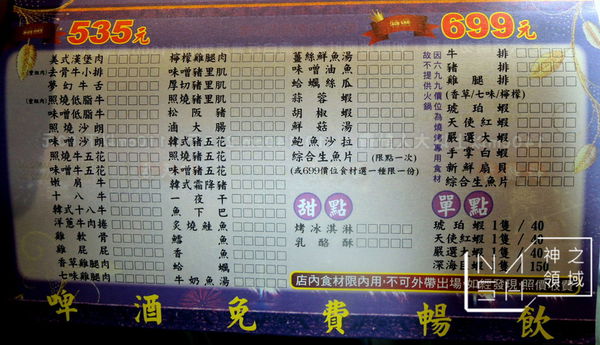 特選
535元
美式漢堡肉
(重組肉)去骨牛小排
夢幻牛舌
(重組肉)照燒低脂牛
味噌低脂牛
照燒沙朗
味噌沙朗
照燒牛五花
味噌牛五花
嫩肩牛
十八牛
韓式十八牛
洋蔥牛肉捲
雞軟骨
雞屁屁
香草雞腿肉
七味雞腿肉
檸檬雞腿肉
味噌豬里肌
厚切豬里肌
照燒豬里肌
松阪豬
滷大腸
韓式豬五花
照燒豬五花
味噌豬五花
韓式霜降豬
一夜干
魚下巴
炙燒鮭魚
鱈魚
香魚
蛤蠣
牛奶魚湯
薑絲鮮魚湯
味噌油魚
蛤蠣絲瓜
蒜蓉蝦
胡椒蝦
鮮菇湯
鮑魚沙拉
綜合生魚片(限點一次)
(或699價位食材選一種限一份)
甜點
烤冰淇淋
乳酪酥
特選
699元
因六九九價位為燒烤專用食材
故不提供火鍋
牛排
豬排
雞腿排
(香草/七味/檸檬)
琥珀蝦
天使紅蝦
嚴選大蝦
手掌白蝦
新鮮扇貝
綜合生魚片
單點
琥珀蝦1隻/40
天使紅蝦1隻/40
嚴選大蝦1隻/40
深海巨蝦 150
店內食材限內用,不可外帶出場,如經發現,照價收費
啤酒免費暢飲
神之領域